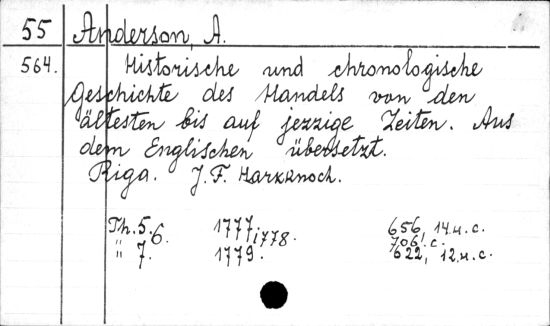 55 Anderson, A.
564. Historische und chronologische
Geschichte des Handels von den
ältesten bis auf jezzige Zeiten. Aus
dem Englischen übersetzt.
Riga. J. F. Hartknoch.
Th. 5. 1777 656, 14 н. с.
6. 1778. 706 с.
" 7. 1779. 622, 12 н. с.